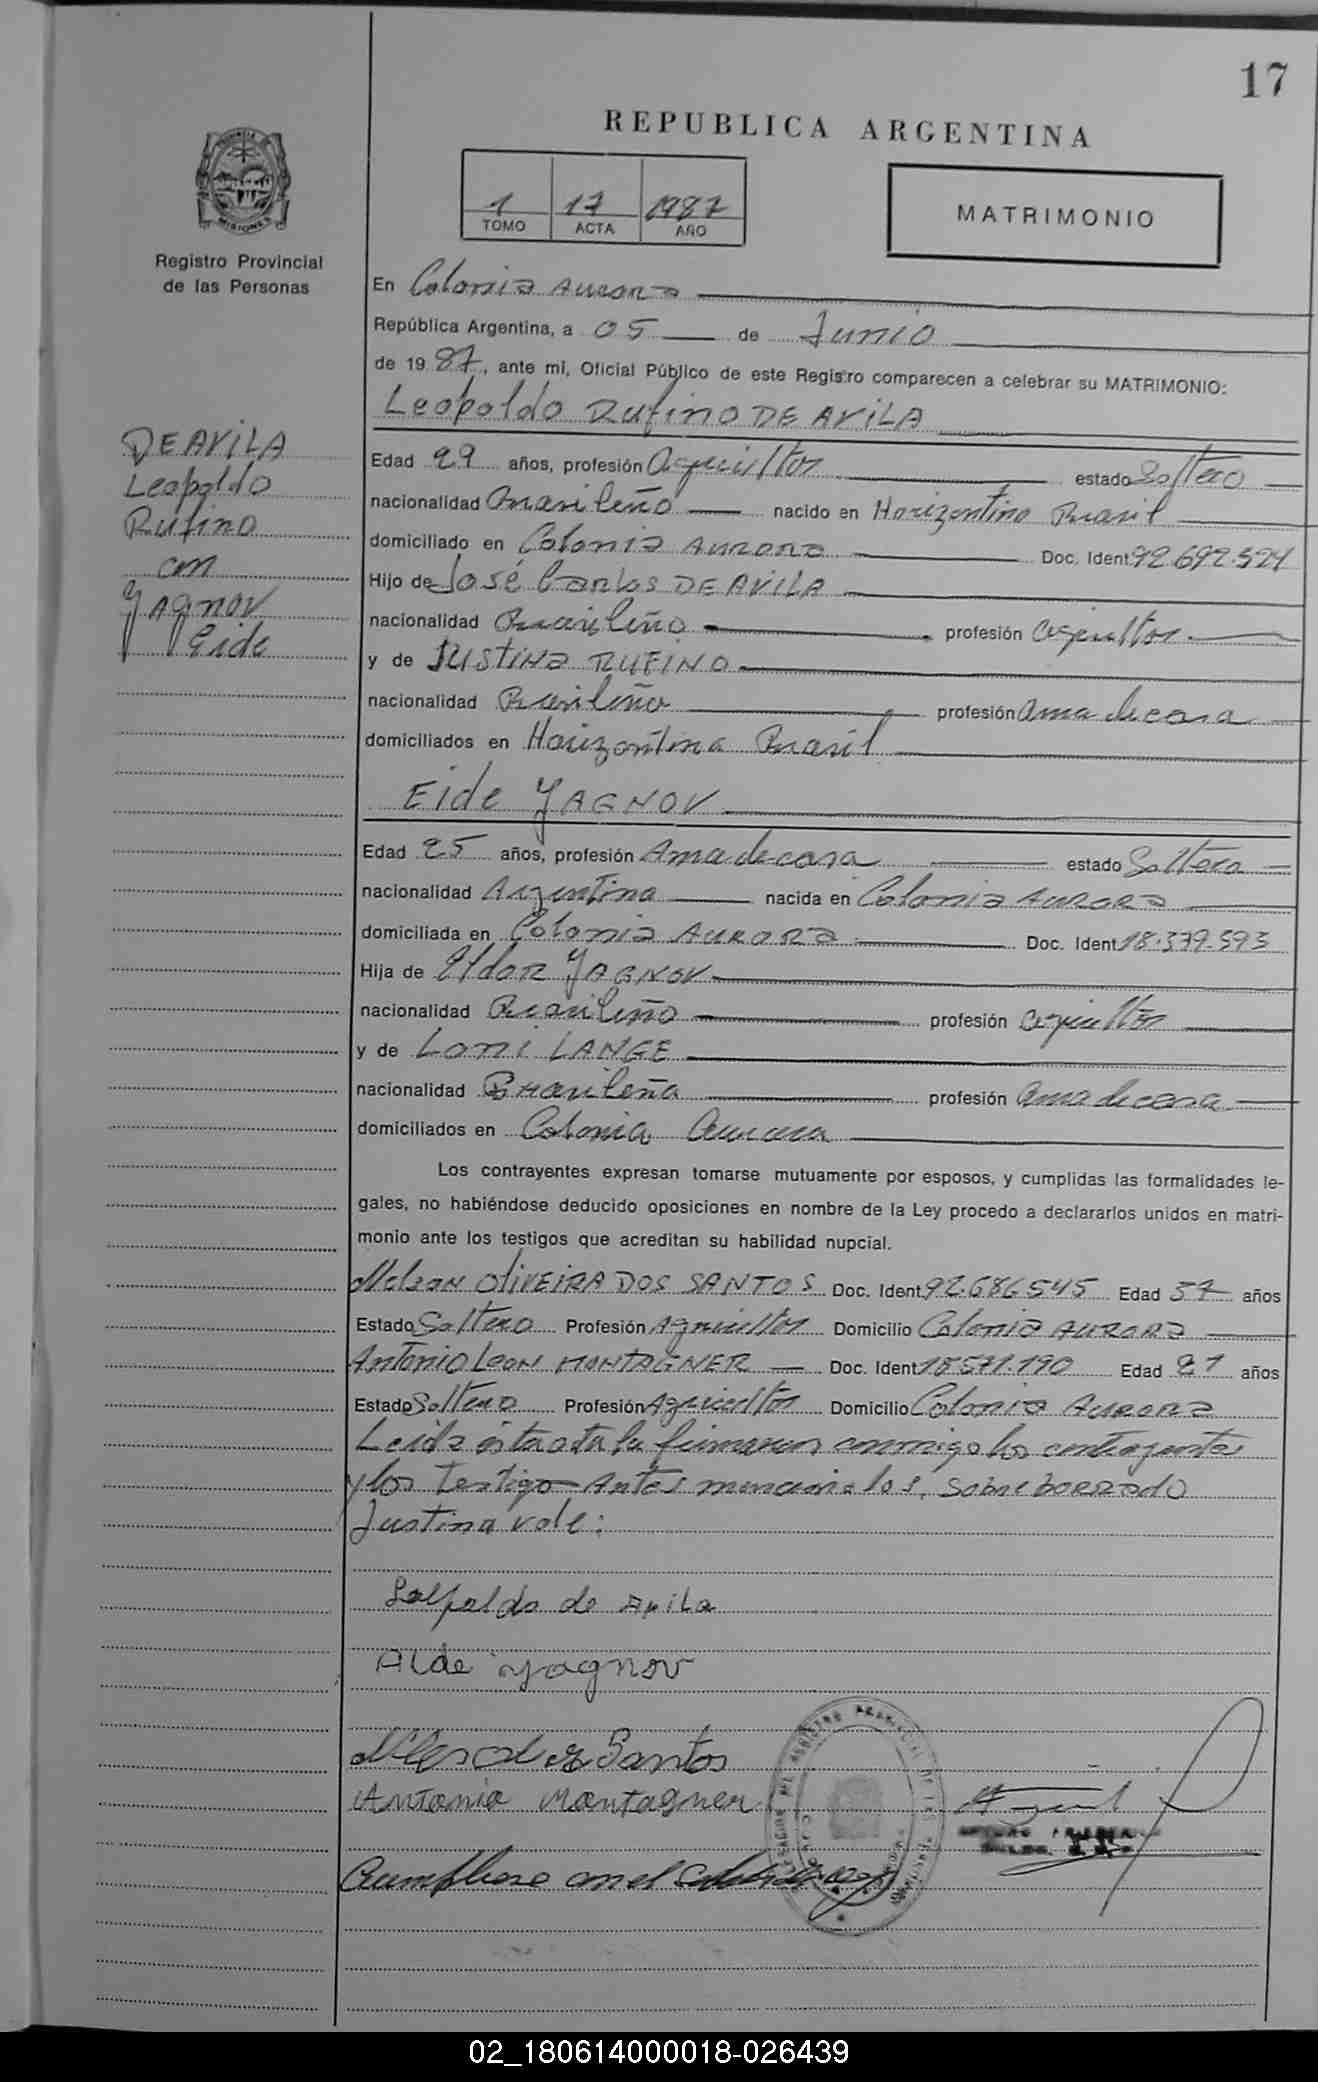 17
REPUBLICA ARGENTINA
PROVINCIA DE
MISIONES
Registro Provincial
de las Personas
1 17 1987
TOMO ACTA AÑO
MATRIMONIO
En Colonia Aurora
República Argentina, a 05 de Junio
de 1987, ante mi, Oficial Público de este Registro comparecen a celebrar su MATRIMONIO:
Leopoldo Rufino DE AVILA
DE AVILA
Leopoldo
Rufino
con
YAGNOV
Eide
Edad 29 años, profesión Agricultor estado Soltero
nacionalidad Brasileño nacido en Horizontino Brasil
domiciliado en Colonia Aurora Doc. Ident 92.692.524
Hijo de José Carlos DE AVILA
nacionalidad Brasileño profesión agricultor
y de JUSTINA RUFINO
nacionalidad Brasileña profesión Ama de casa
domiciliados en Horizontina Brasil
Eide YAGNOV
Edad 25 años, profesión Ama de casa estado Soltera
nacionalidad Argentina nacida en Colonia Aurora
domiciliada en Colonia Aurora Doc. Ident 18.379.593
Hija de Eldor YAGNOV
nacionalidad Brasileño profesión agricultor
y de Loni LANGE
nacionalidad Brasileña profesión Ama de casa
domiciliados en Colonia Aurora
Los contrayentes expresan tomarse mutuamente por esposos, y cumplidas las formalidades le-
gales, no habiéndose deducido oposiciones en nombre de la Ley procedo a declararlos unidos en matri-
monio ante los testigos que acreditan su habilidad nupcial.
Nelson OLIVEIRA DOS SANTOS Doc. Ident 92.686.545 Edad 37 años
Estado Soltero Profesión Agricultor Domicilio Colonia Aurora
Antonio Leon MONTAGNER Doc. Ident 18571.190 Edad 21 años
Estado Soltero Profesión Agricultor Domicilio Colonia Aurora
Leida esta acta la firmaron conmigo los contrayentes
y los Testigo Antes mencionados. Sobre borrado
Justina vale:
Leopoldo de Avila
Aide Yagnov
Santos
Antonio Montagner
02_180614000018-026439